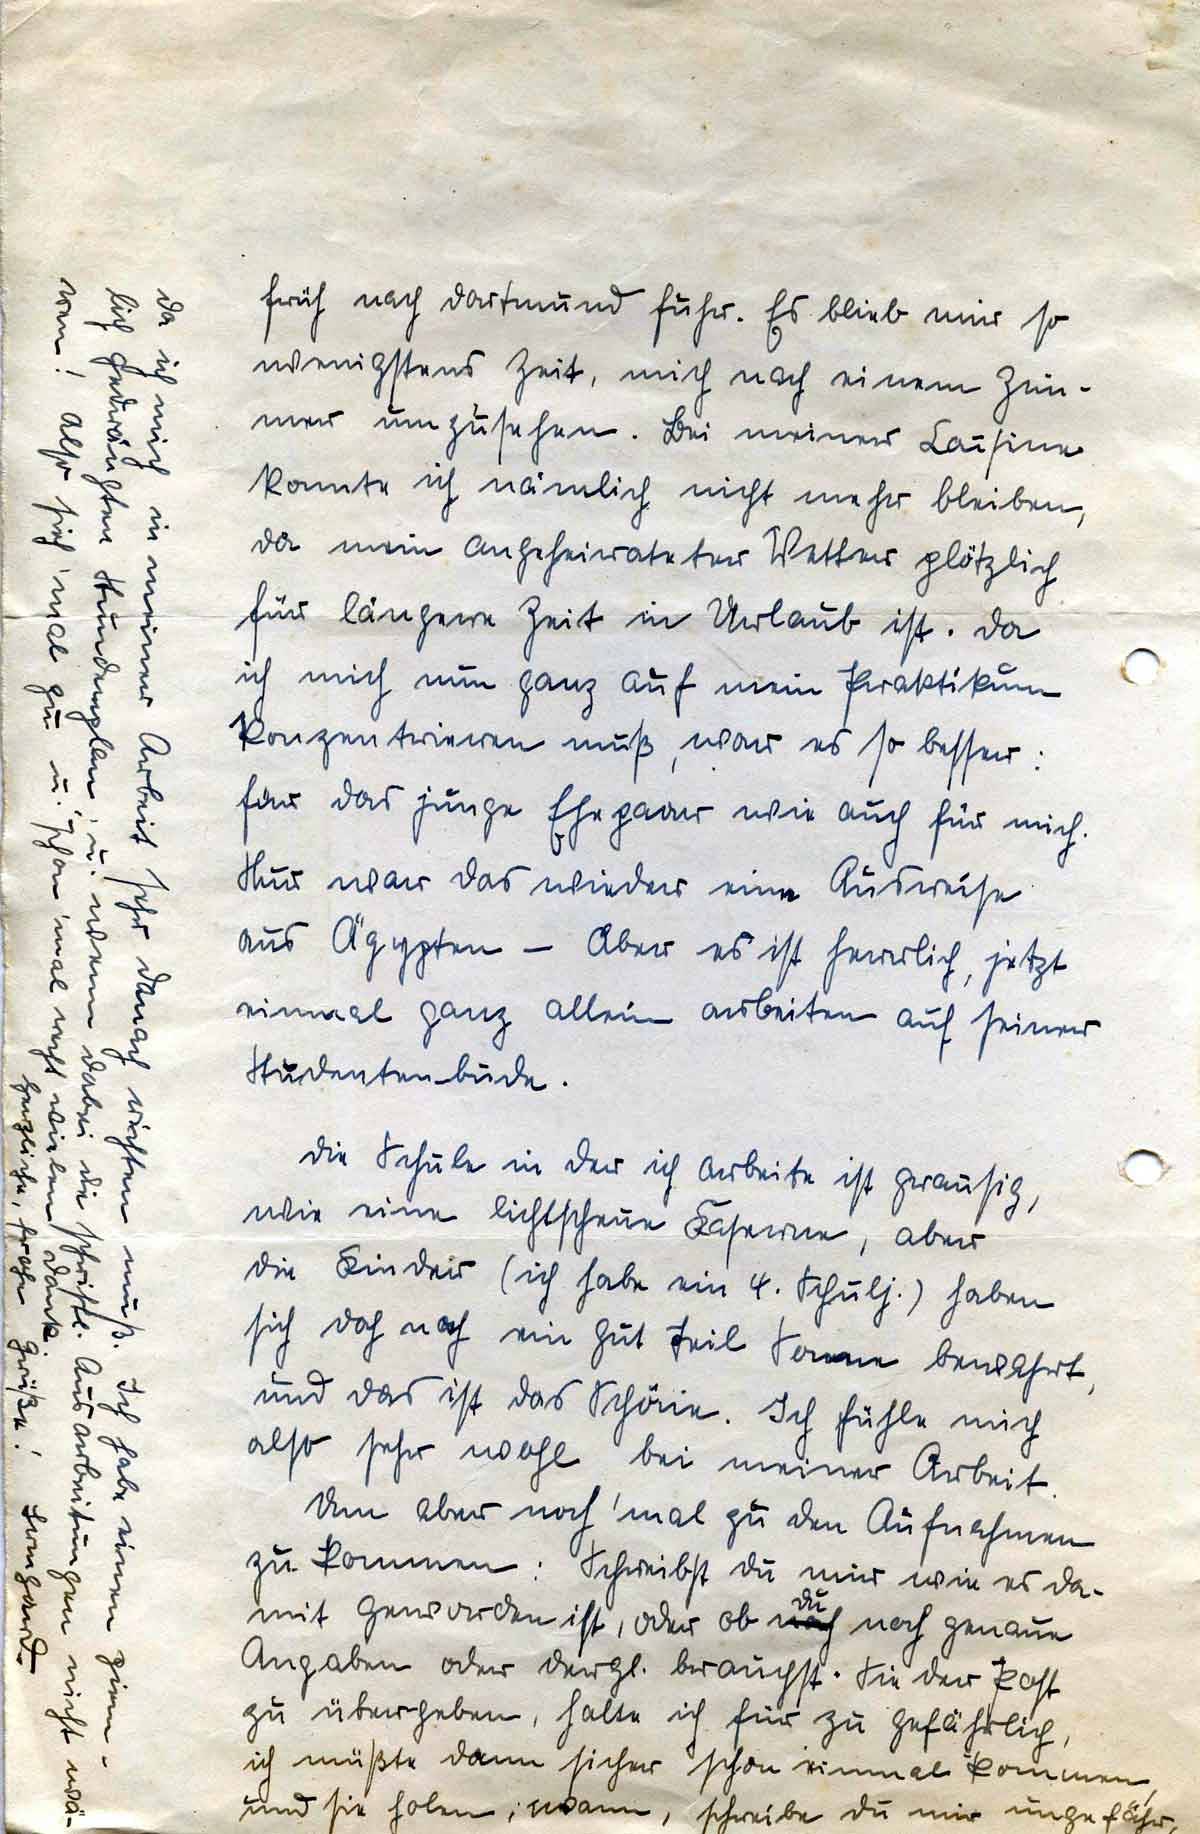 früh nach Dortmund fuhr. Es blieb mir so
wenigstens Zeit, mich nach einem Zim-
mer umzusehen. Bei meiner Cousine
konnte ich nämlich nicht mehr bleiben,
da mein angeheirateter Vetter plötzlich
für längere Zeit in Urlaub ist. Da
ich mich nun ganz auf mein Praktikum
konzentrieren muß, war es so besser:
für das junge Ehepaar wie auch für mich.
Nur war das wieder eine Ausreise
aus Ägypten – Aber es ist herrlich, jetzt
einmal ganz allein arbeiten auf seiner
Studentenbude.
Die Schule in der ich arbeite ist grausig,
wie eine lichtscheue Kaserne, aber
die Kinder (ich habe ein 4. Schulj.) haben
sich doch noch ein gut Teil Sonne bewahrt,
und das ist das Schöne. Ich fühle mich
also sehr wohl bei meiner Arbeit.
Um aber noch 'mal zu den Aufnahmen
zu kommen: Schreibst du mir wie es da-
mit geworden ist, oder ob du noch genaue
Angaben oder dergl. brauchst. Sie der Post
zu übergeben, halte ich für zu gefährlich,
ich müßte dann sicher schon einmal kommen,
und sie holen; wann, schreibe du mir ungefähr,
da ich mich in meiner Arbeit sehr danach richten muß. Ich habe einen ziem-
lich gedrängten Stundenplan, u. wenn dabei die schriftl. Ausarbeitungen nicht wä-
ren! Also sieh 'mal zu u. schon 'mal recht vielen Dank.
Herzliche, frohe Grüße! Irmgard